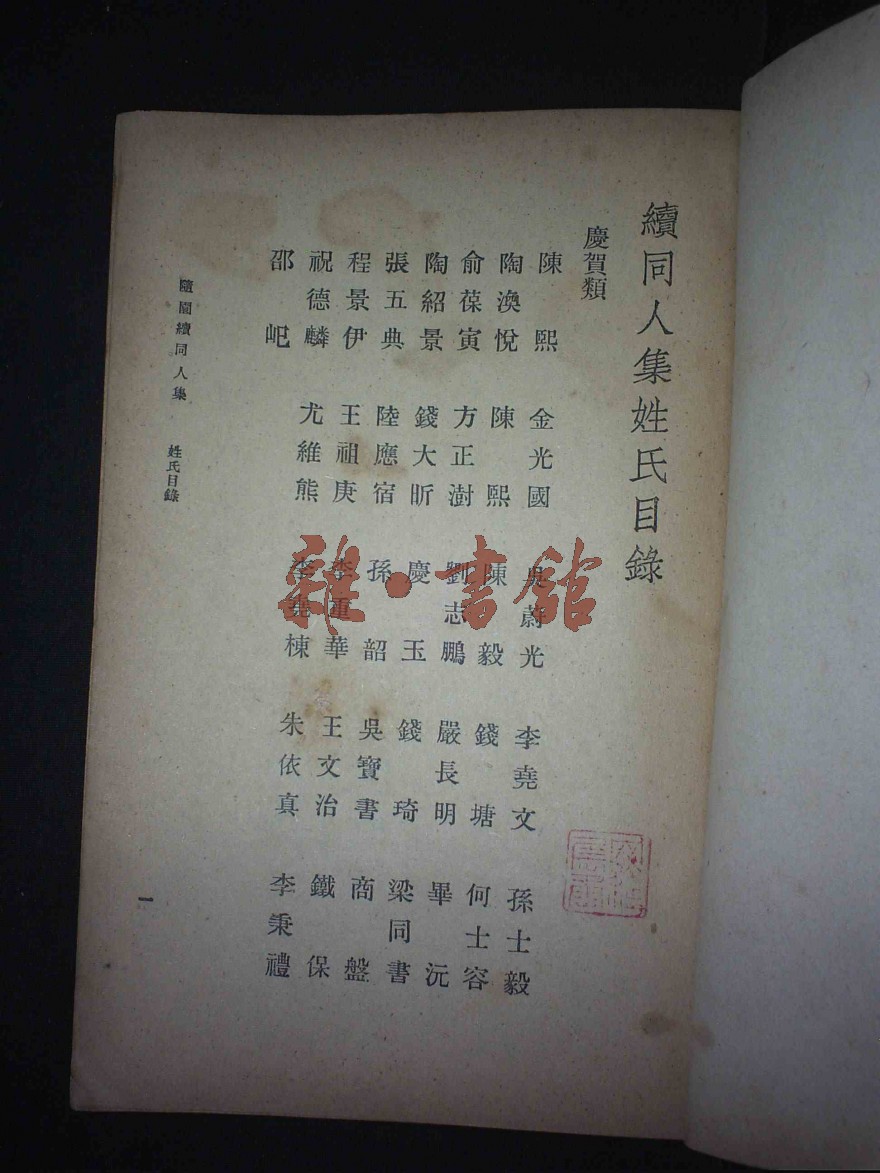 續同人集姓氏目錄
慶賀類
陳熙 金光國 吳蔚光 李堯文 孫士毅
陶渙悅 陳熙 陳毅 錢塘 何士容
俞葆寅 方正澍 劉志鵬 嚴長明 畢沅
陶紹景 錢大昕 慶玉 錢琦 梁同書
張五典 陸應宿 孫韶 吳寶書 商盤
程景伊 王祖庚 李重華 王文治 鐵保
祝德麟 尤維熊 李堯棟 朱依真 李秉禮
邵屺
隨園續同人集 姓氏目錄
一
雜·書館